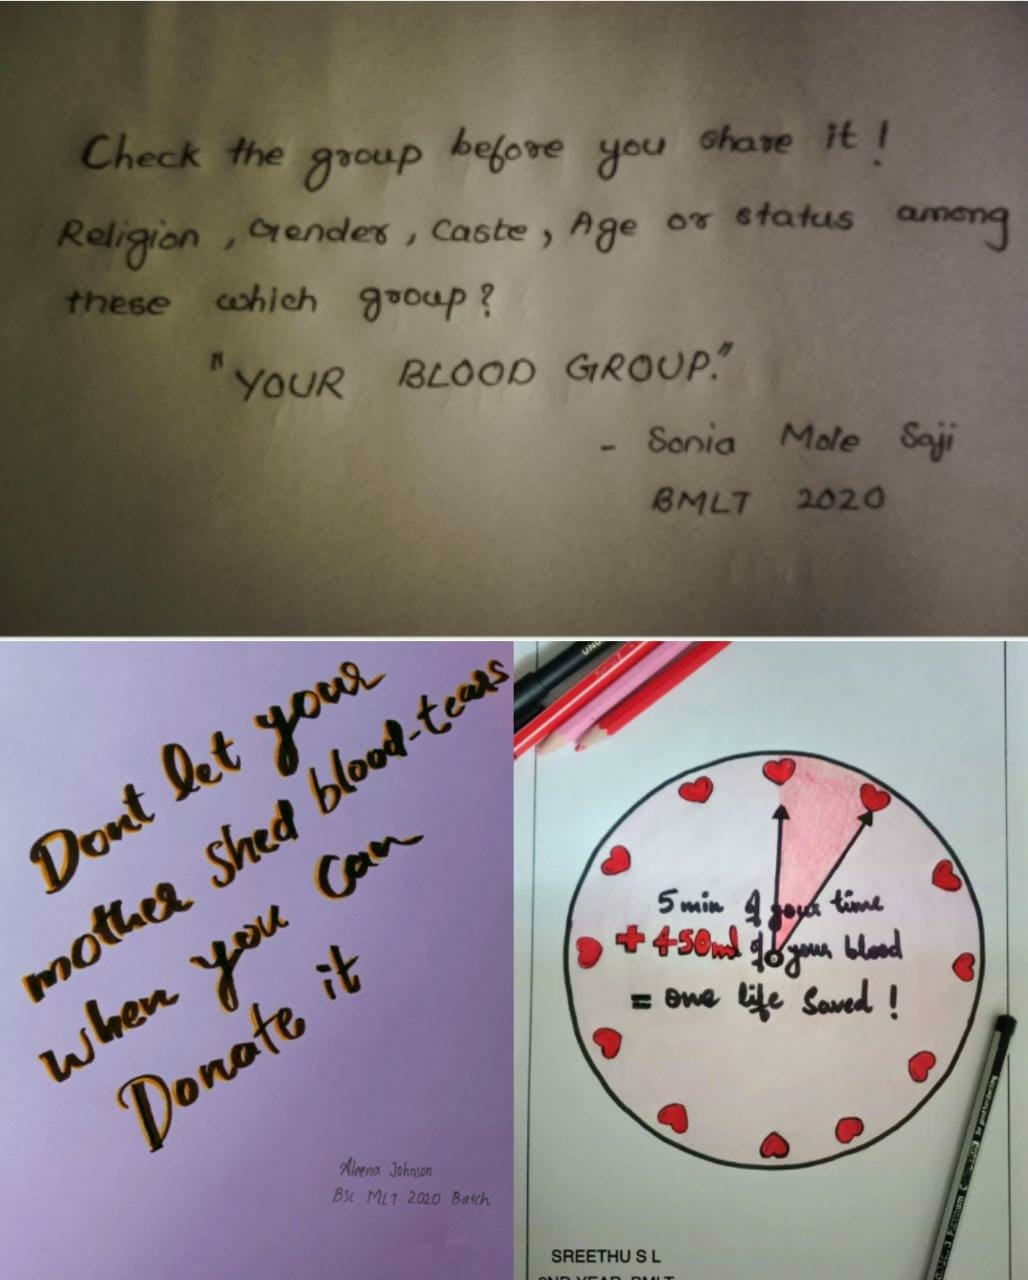 Check the group before you share it!
Religion, Gender, Caste, Age or status among
these which group?
"YOUR BLOOD GROUP."
- Sonia Mole Saji
BMLT 2020
Dont let your
mother shed blood-tears
when you can
Donate it
Aleena Johnson
Bsc MLT 2020 Batch
5 min of your time
+ 450ml of your blood
= one life saved!
SREETHU S L
2ND YEAR BMLT